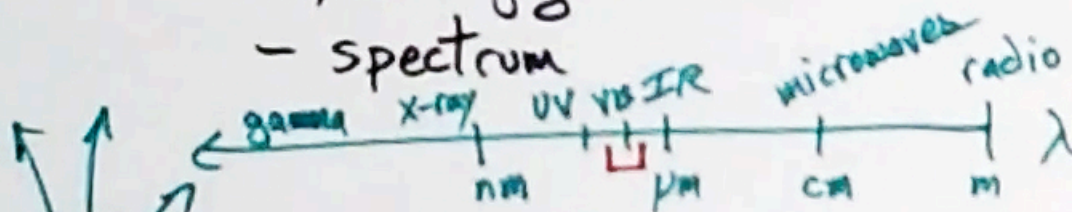 - spectrum
gamma x-ray UV vis IR microwaves radio
λ
nm μm cm m